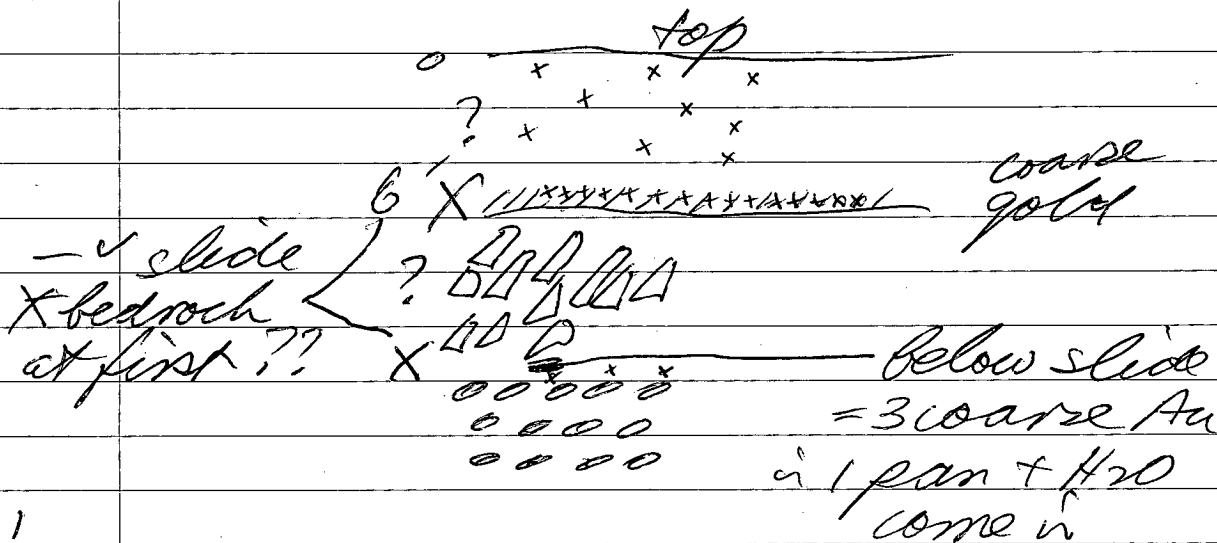 top
0
?
6' X
coarse
gold
— ✓ slide
X bedrock
at first ??
?
X
below slide
= 3 coarse Au
in 1 pan + H2O
come in
1